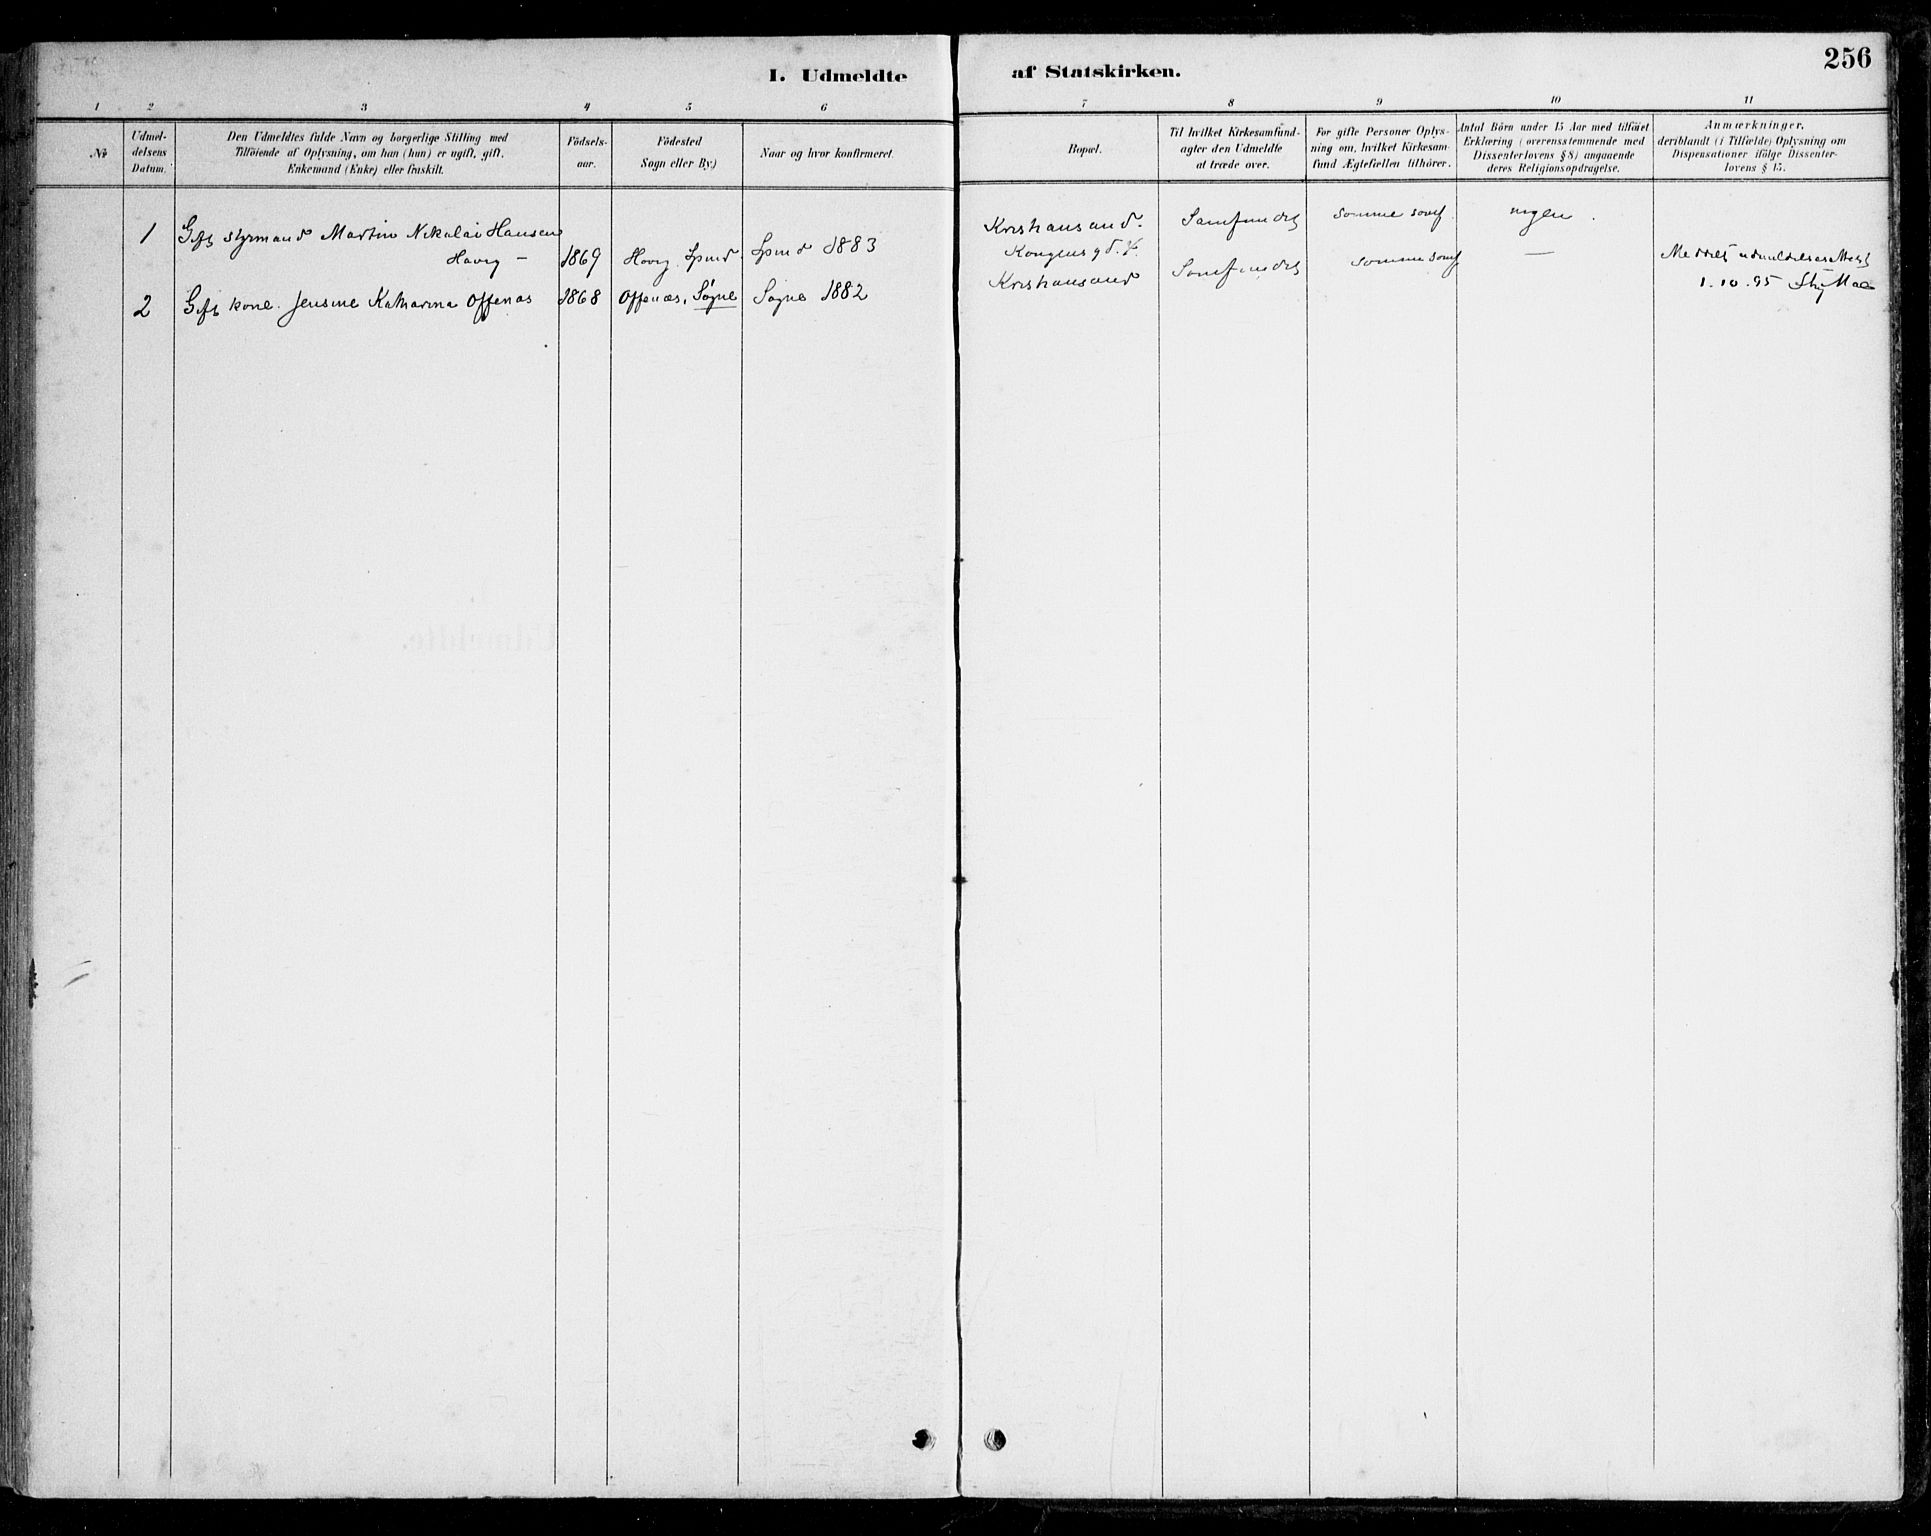 I. Udmeldte af Statskirken.
256
1 2 3 4 5 6 7 8 9 10 11
№
Udmel-
delsens
Datum.
Den Udmeldtes fulde Navn og borgerlige Stilling med
Tilföiende af Oplysning, om han (hun) er ugift, gift,
Enkemand (Enke) eller fraskilt.
Födsels-
aar.
Födested
Sogn eller By.)
Naar og hvor konfirmeret.
Bopæl.
Til hvilket Kirkesamfund-
agter den Udmeldte
at træde over.
For gifte Personer Oplys-
ning om, hvilket Kirkesam-
fund Ægtefællen tilhörer.
Antal Börn under 15 Aar med tilföiet
Erklæring (overensstemmende med
Dissenterlovens § 8) angaaende
deres Religionsopdragelse.
Anmærkninger,
deriblandt (i Tilfælde) Oplysning om
Dispensationer ifölge Dissenter-
lovens § 15.
1 Gift styrmand Martin Nikolai Hansen
Havig — 1869 Havig. Spind Spind 1883
Kristiansand.
Kongensgd.
Samfundet
Somme samf.
ingen.
2 Gift kone. Jensine Katharina Offenæs 1868 Offenæs, Søgne Søgne 1882
Kristiansand Samfundet Somme samf —
Meddelt udmeldelsesattest
1.10.95